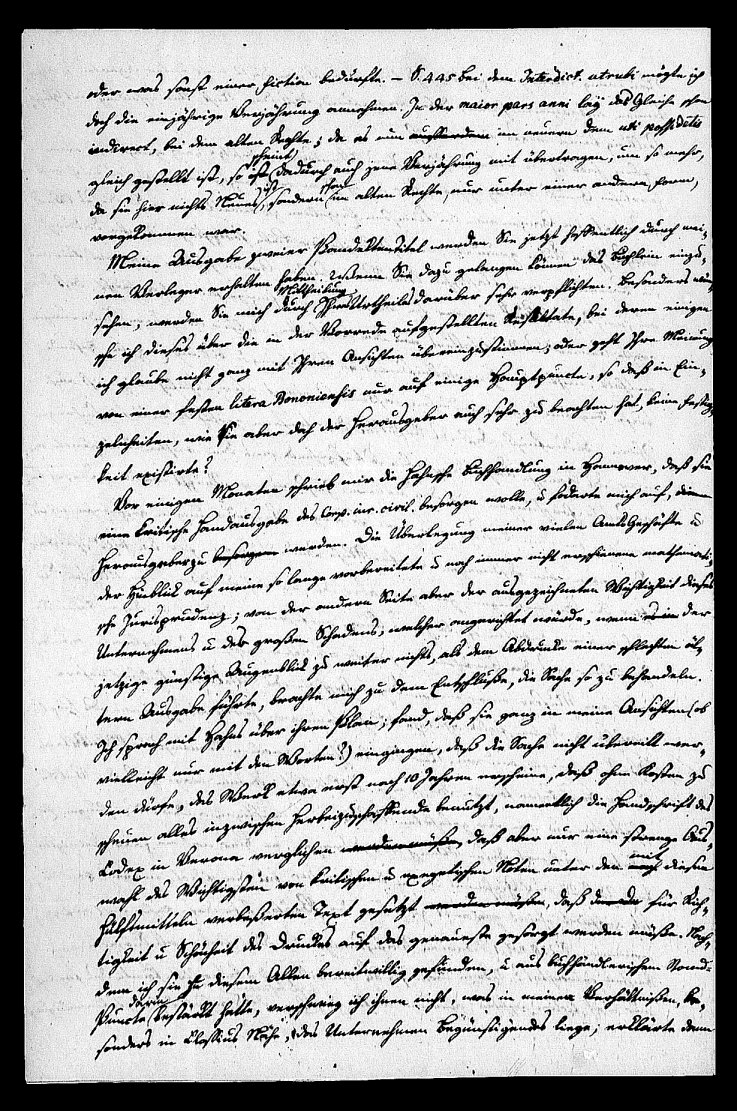 oder was sonst einer Fiction bedurfte. – S. 445 bei dem Interdict. utrubi mögte ich
doch die einjährige Verjährung annehmen. In der maior pars anni lag das Gleiche schon
indirect, bei dem alten Rechte; da es nun außerdem im neuern dem uti possidetis
gleich gestellt ist, so scheint ist dadurch auch jene Verjährung mit übertragen, um so mehr,
da sie hier nichts Neues ist, sondern schon im alten Rechte, nur unter einer andern Form,
vorgekommen war.
Meine Ausgabe zweier Pandektentitel werden Sie jetzt hoffentlich durch mei-
nen Verleger erhalten haben. Wenn Sie dazu gelangen können das Büchlein einzu-
sehen, werden Sie mich durch Mittheilung Ihres Urtheiles darüber sehr verpflichten. Besonders wün-
sche ich dieses über die in der Vorrede aufgestellten Resultate, bei deren einigen
ich glaube nicht ganz mit Ihren Ansichten übereinzustimmen; oder geht Ihre Meinung
von einer festen litera Bononiensis nur auf einige Hauptpuncte, so daß in Ein-
zelnheiten, wie sie aber doch der Herausgeber auch sehr zu beachten hat, keine Festig-
keit existirte?
Vor einigen Monaten schrieb mir die Hahnsche Buchhandlung in Hannover, daß sie
eine kritische Handausgabe des Corp. iur. civil. besorgen wolle, u foderte mich auf,
Herausgeber zu besorgen werden. Die Überlegung meiner vielen Amts Geschäfte u
der Hinblick auf meine so lange vorbereitete u noch immer nicht erschienene mathemati-
sche Jurisprudenz; von der andern Seite aber der ausgezeichneten Wichtigkeit dieses
Unternehmens u des großen Schadens, welcher angerichtet würde, wenn es in der
jetzige günstige Augenblick zu weiter nichts, als dem Abdrucke einer schlechten äl-
tern Ausgabe führte, brachte mich zu dem Entschluße, die Sache so zu behandeln.
Ich sprach mit Hahns über ihren Plan; fand, daß sie ganz in meine Ansichten (ob
vielleicht nur mit den Worten?) eingingen, daß die Sache nicht übereilt wer-
den dürfe, das Werk etwa erst nach 10 Jahren erscheine, daß ohne Kosten zu
scheuen alles inzwischen Herbeizuschaffende benutzt, namentlich die Handschrift des
Codex in Verona verglichen werden müße, daß aber nur eine strenge Aus-
wahl des Wichtigsten von kritischen u exegetischen Noten unter den mit diesen
Hülfsmitteln verbeßerten Text gesetzt werden müßen, daß für Rich-
tigkeit u Schönheit des Druckes auf das genaueste gesorgt werden müße. Nach-
dem ich sie zu diesem Allen bereitwillig gefunden, u aus buchhändlerischem Stand-
Puncte darin bestärkt hatte, verschwieg ich ihnen nicht, was in meinen Verhältnißen, be-
sonders in Clossius Nähe, das Unternehmen Begünstigendes liege; erklärte denn